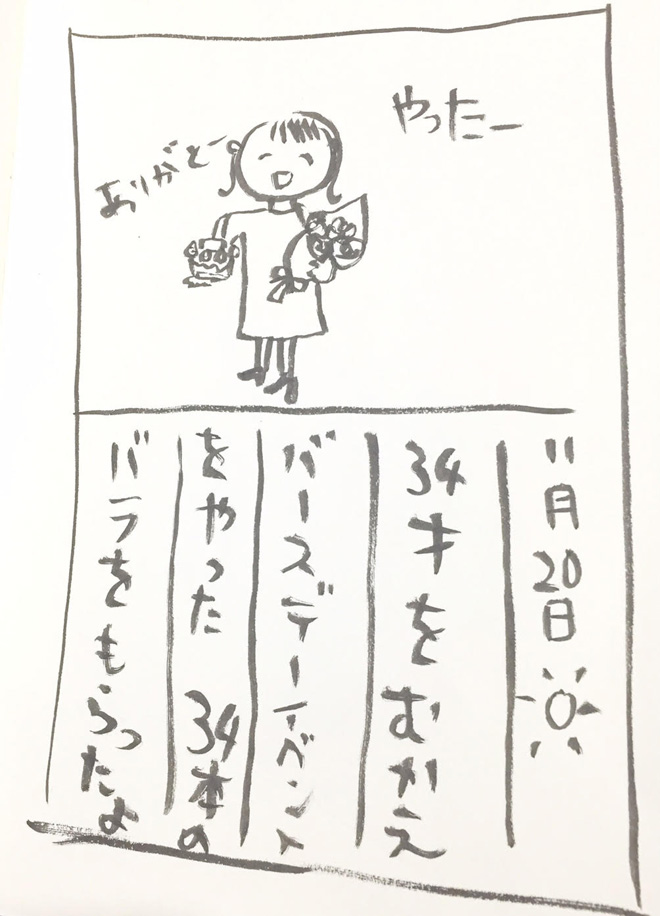 やったー
ありがとー
11月20日
34才をむかえ
バースデーイベント
をやった 34本の
バラをもらったよ